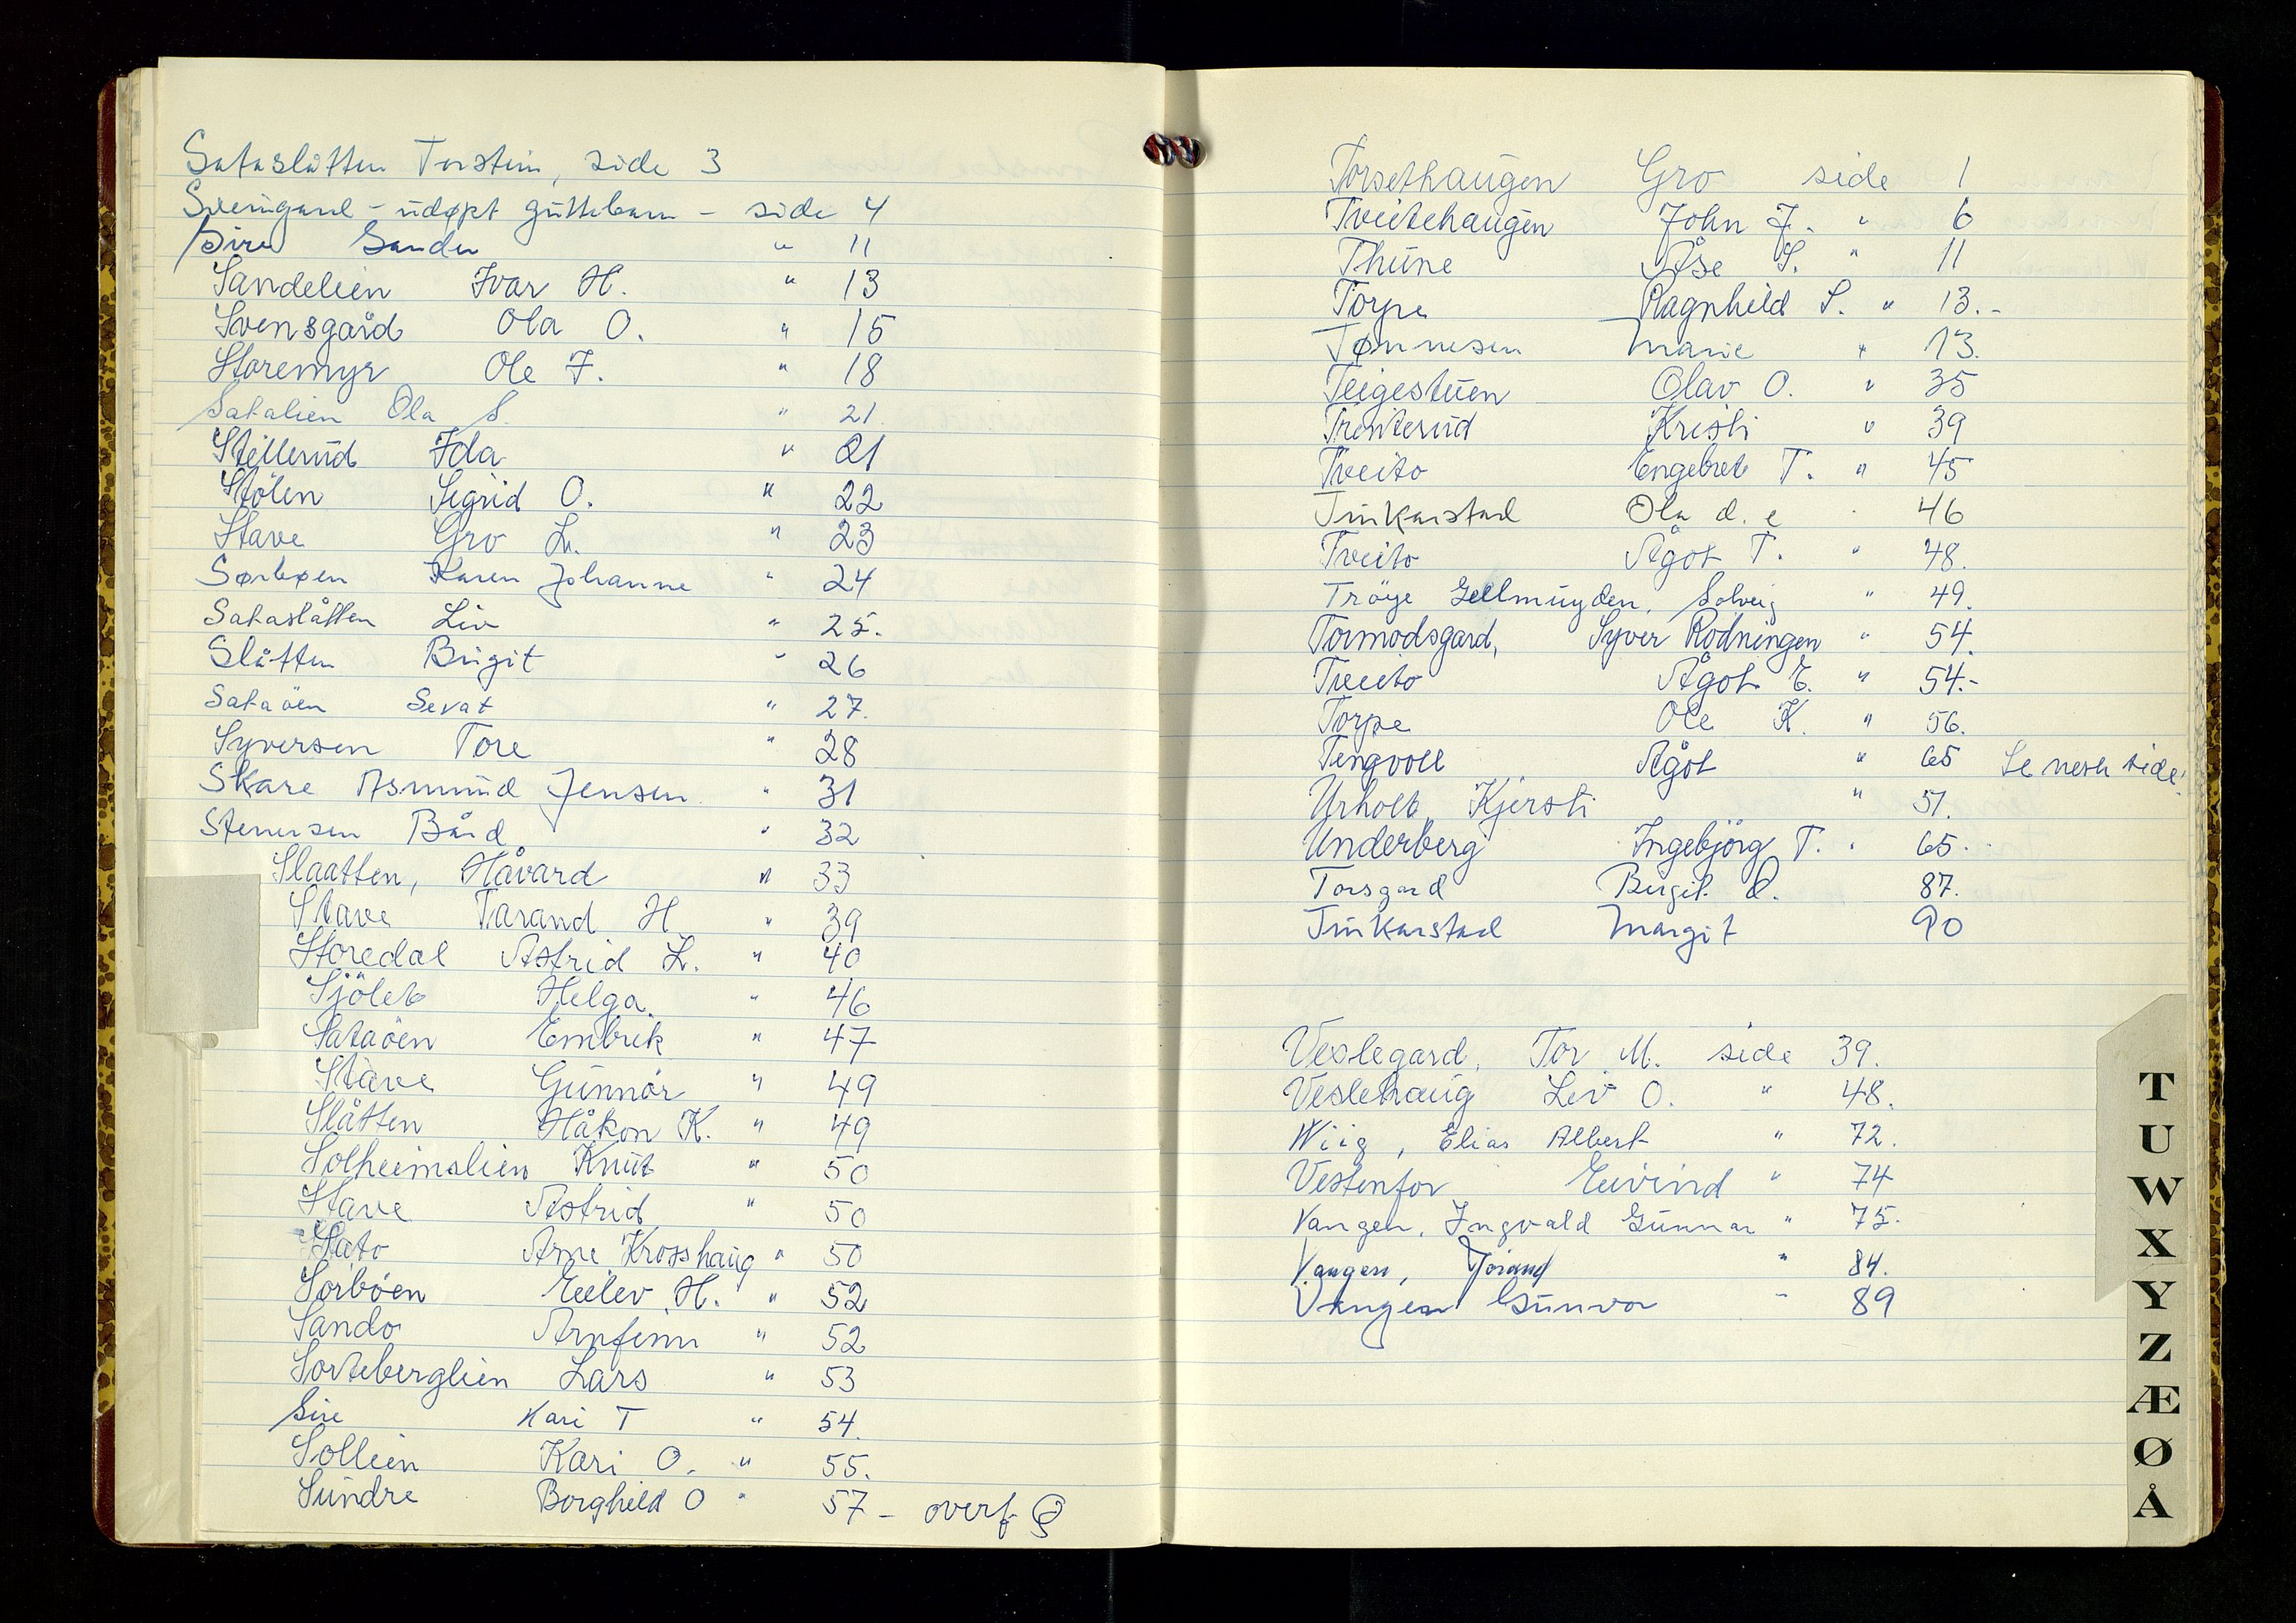 Sataslåtten Torstein, side 3
Sveingard - udøpt guttebarn - side 4
Sire Sander " 11
Sandelien Ivar H. " 13
Svensgård Ola O. " 15
Storemyr Ole J. " 18
Satalien Ola S. " 21.
Stillerud Ida " 21
Stölen Sigrid O. " 22
Stave Gro L. " 23
Sørbøen Karen Johanne " 24
Sataslåtten Liv " 25.
Slåtten Birgit " 26
Sataöen Sevat " 27.
Syversen Tore " 28
Skare Asmund Jensen " 31
Stenersen Bård " 32
Slaatten, Håvard " 33
Stave Tarand H " 39
Storedal Astrid L. " 40
Sjölet Helga. " 46
Sataöen Embrik " 47
Stave Gunnar " 49
Slåtten Håkon K. " 49
Solheimslien Knut " 50
Stave Astrid " 50
Sato Arne Krosshaug " 50
Sorböen Eilev H. " 52
Sando Arnfinn " 52
Sorteberglien Lars " 53
Sire Kari T " 54.
Sollien Kari O. " 55.
Sundre Borghild O " 57 - overf.
Torsethaugen Gro side 1
Tveitehaugen John J. " 6
Thune Åse S. " 11
Torpe Ragnhild S. " 13.-
Tønnesen Marie " 13.
Teigestuen Olav O. " 35
Trinterud Kristi " 39
Tveito Engebret T. " 45
Trinkarstad Ola d. e " 46
Tveito Ågot T. " 48.
Tröye Gellmuyden, Solveig " 49.
Tormodsgard, Syver Rodningen " 54.
Tveito Ågot E. " 54.-
Torpe Ole K. " 56.
Tengvoll Ågot " 65 Se nest side!
Urholt, Kjersti " 51.
Underberg Ingebjörg T. " 65.
Torsgard Birgit O. 87.
Trinkarstad Margit 90
Veslegard, Tor M. side 39.
Veslehaug Liv O. " 48.
Wiig, Elias Albert " 72.
Vestenfor Eivind " 74
Vangen, Ingvald Gunnar " 75.
Vangen, Jörand " 84.
Vangen Gunvor " 89
T
U
W
X
Y
Z
Æ
Ø
Å